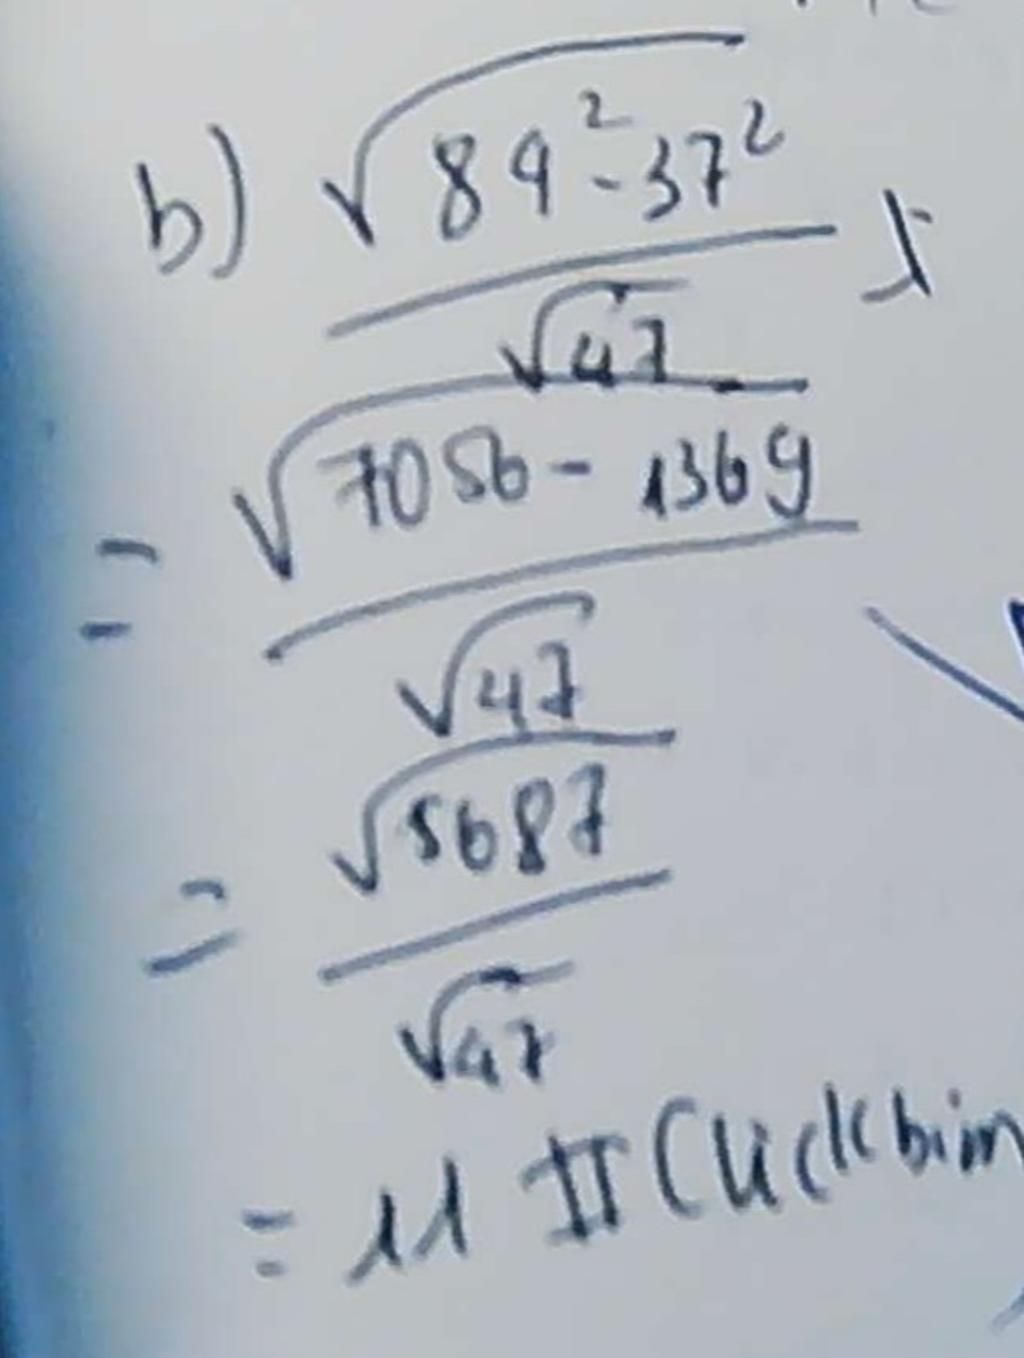 b) √84² - 37²
√47
= √7056 - 1369
√47
= √5687
√47
= 11 # Clickbim